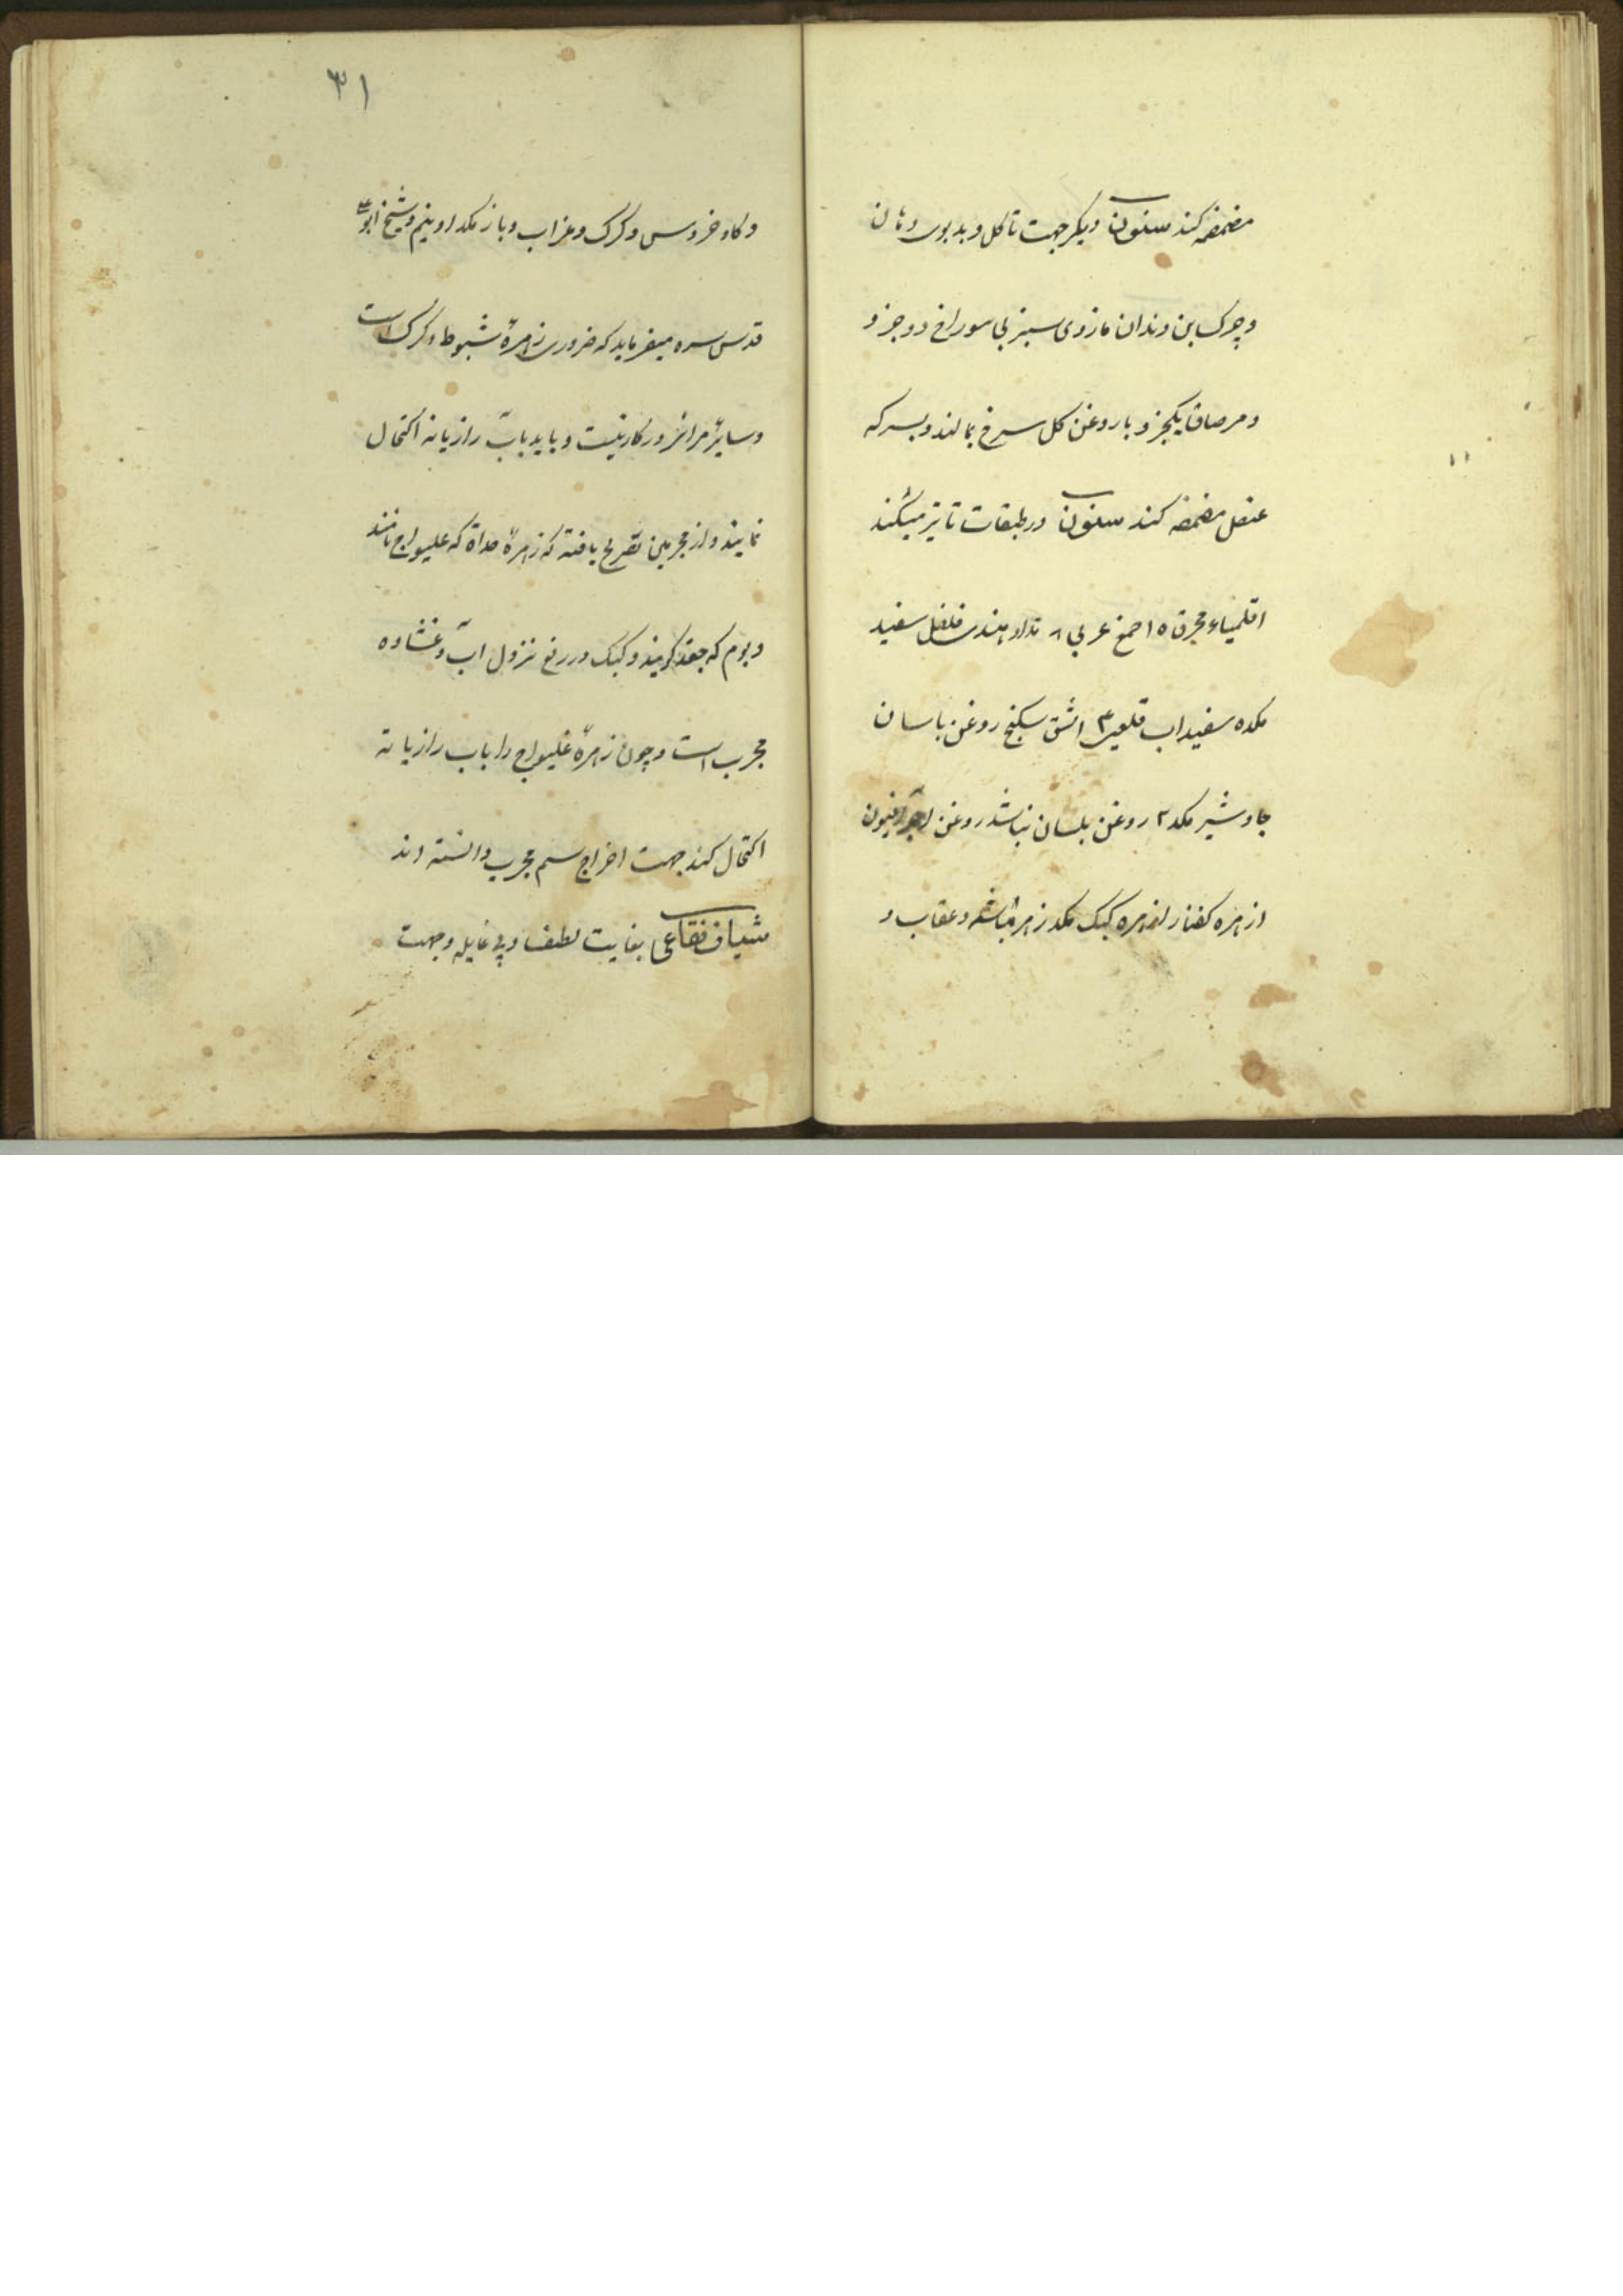 مضمضه کند سنون دیکر جهت تاکل و بدبوی دهان
و چرک بن دندان مازوی سبز بی سوراخ دو جزو
و مرصاف یکجزو با روغن کل سرخ بمالند و بسرکه
عنصل مضمضه کند سنون در طبقات تاثیر میکند
اقلمیاء محرق ۱۵ صمغ عربی ۸ هندی فلفل سفید
مکده سفیداب قلعی ۳ اشق سکبنج روغن باسان
جاوشیر مکد ۲ روغن بلسان نباشد روغن افیون
زهره کفتار زهره کبک مکد زهره باشه و عقاب و
۳۱
و کاو خروس و کرک و غراب و باز مکد او نیم و شیخ ابو
قدس سره میفرماید که ضروری زهرهٔ شبوط و کرک است
و سایر مرائر در کار نیست و باید بآب رازیانه اکتحال
نمایند و از مجربین تصریح یافته که زهرهٔ حداة که غلیواج نامند
و بوم که جغد کویند و کبک در رفع نزول آب و غشاوه
مجرب است و چون زهرهٔ غلیواج را باب رازیانه
اکتحال کنند جهت اخراج سم مجرب دانسته اند
شیاف فقاعی بغایت لطیف و بی غایله و جهت